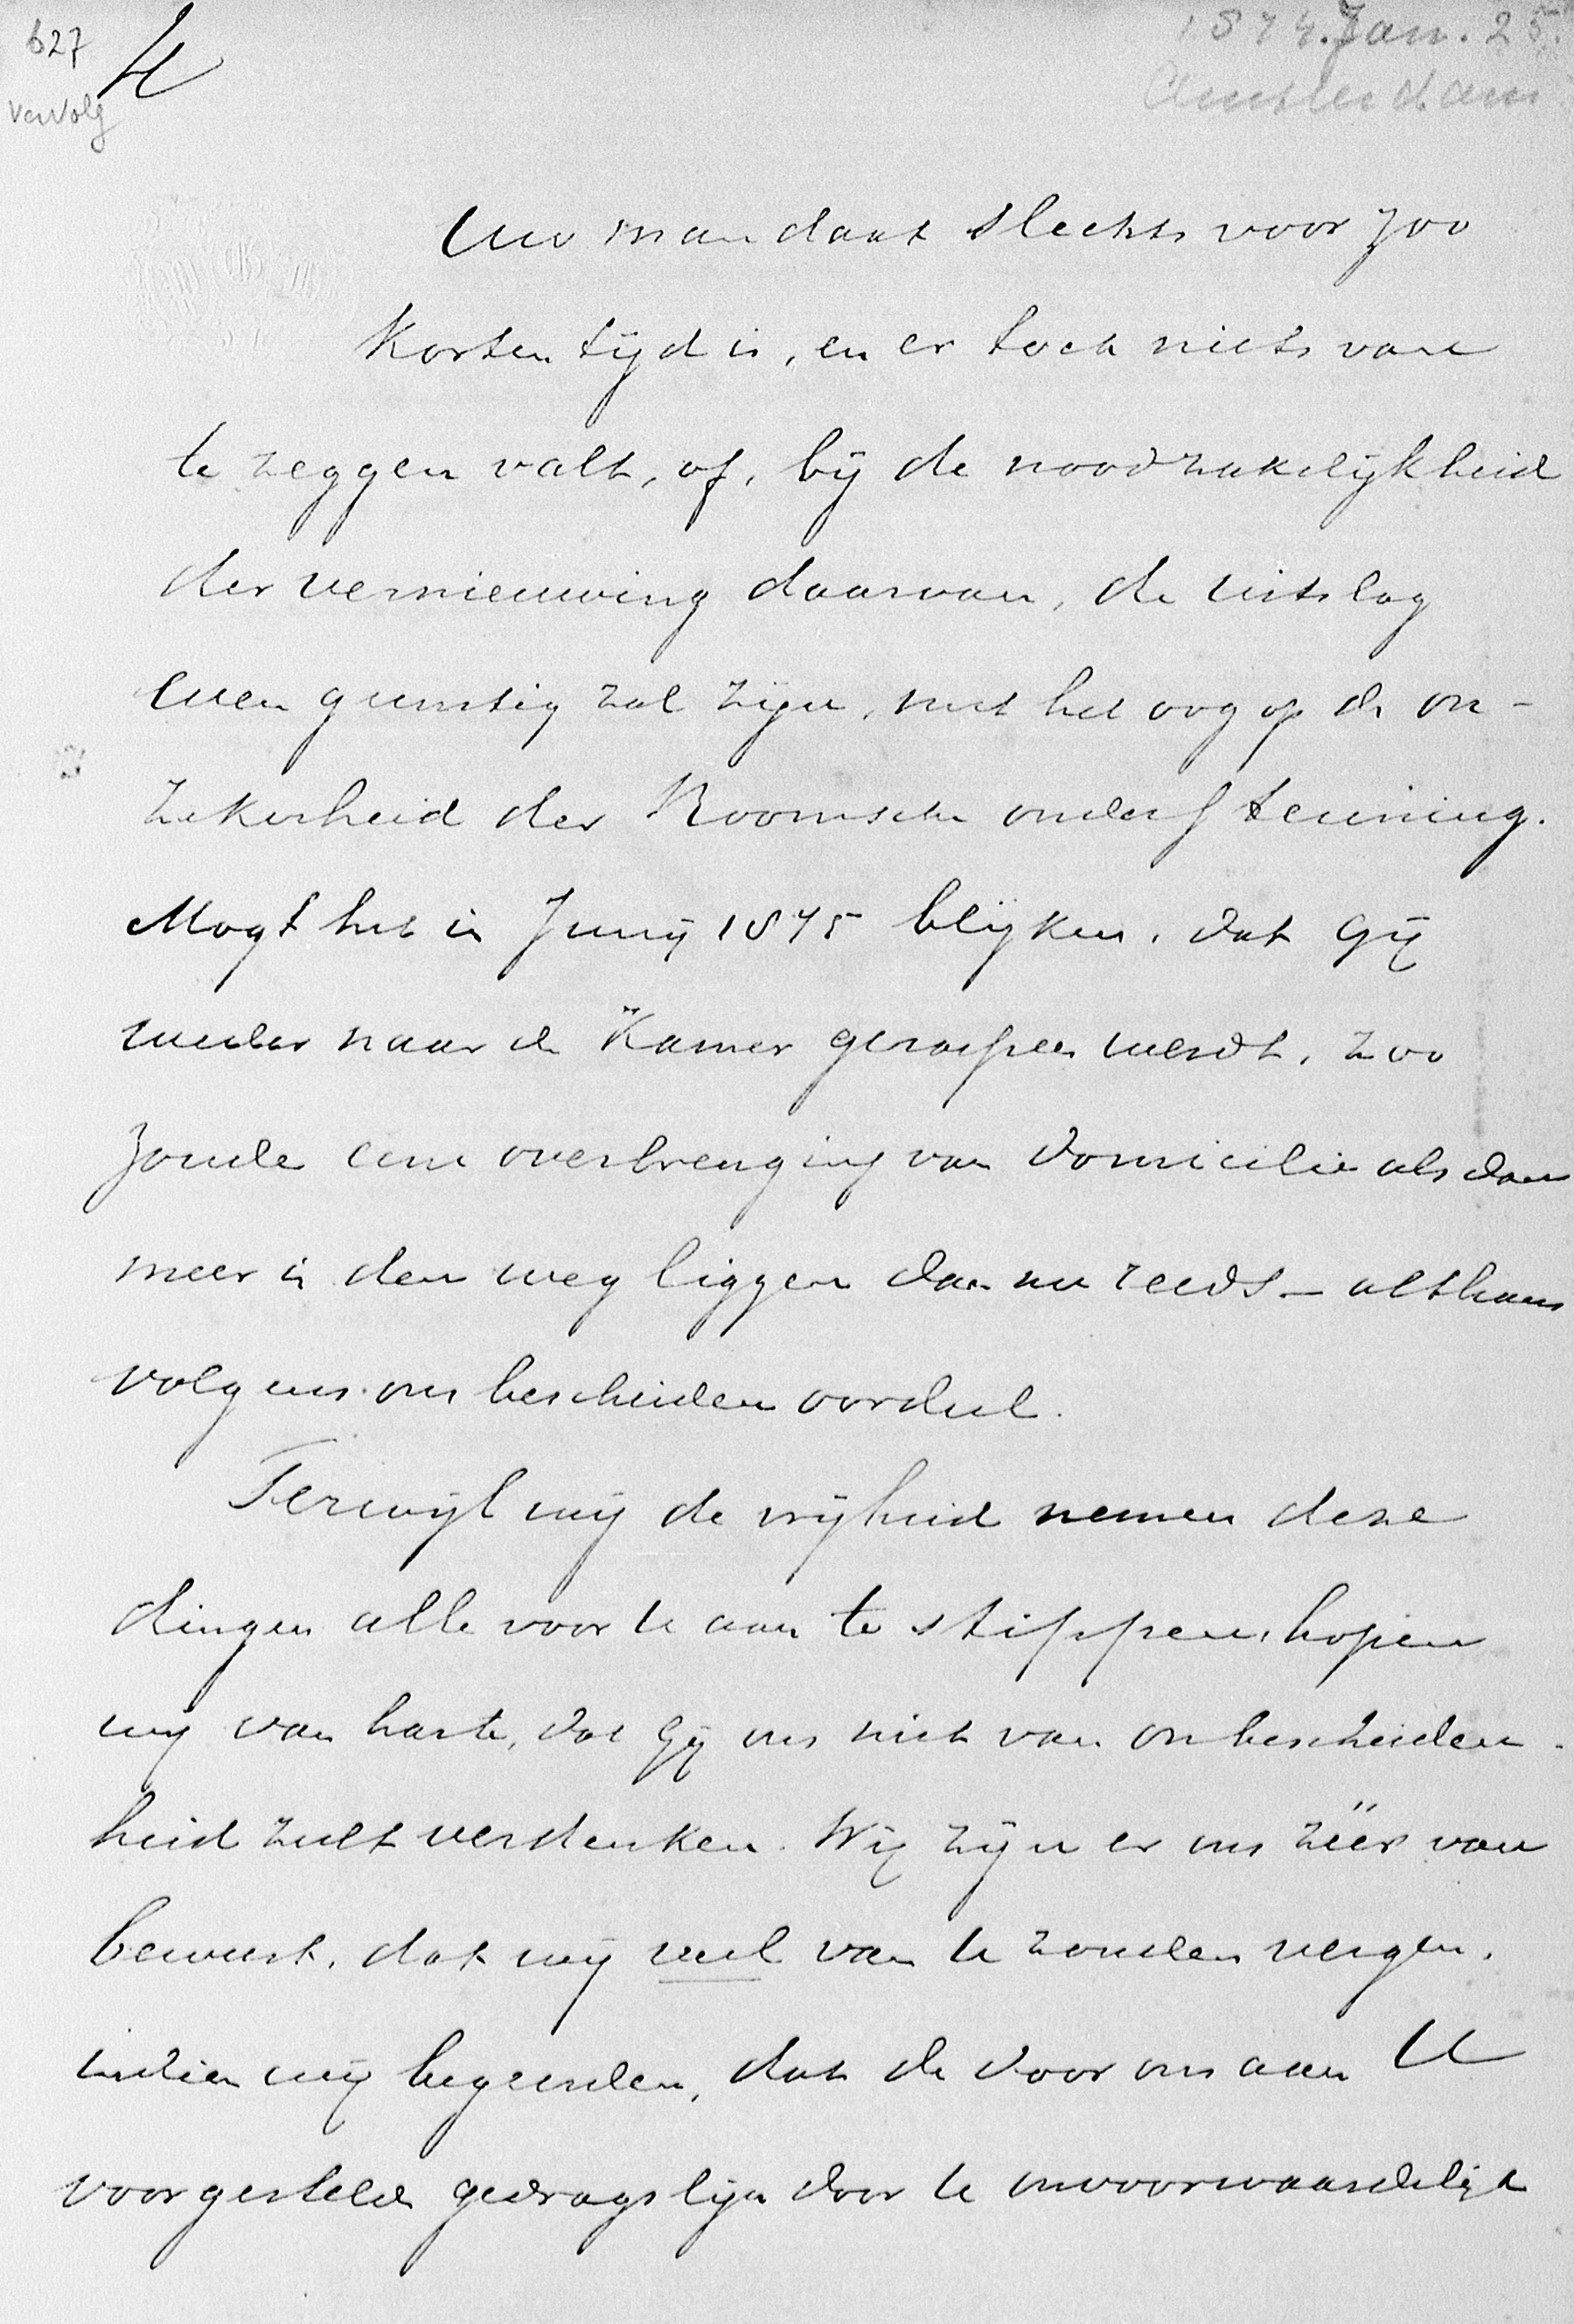 627
vervolg
1874. Jan. 25.
Amsterdam
Uw mandaat slechts voor zoo
korten tijd is, en er toch niets van
te zeggen valt, of, bij de noodzakelijkheid
der vernieuwing daarvan, de uitslag
even gunstig zal zijn, met het oog op de on-
zekerheid der Roomsche ondersteuning.
Mogt het in Junij 1875 blijken, dat Gij
weder naar de Kamer geroepen werdt, zoo
zoude eene overbrenging van domicilie alsdan
meer in den weg liggen dan nu reeds – althans
volgens ons bescheiden oordeel.
Terwijl wij de vrijheid nemen deze
dingen alle voor U aan te stippen, hopen
wij van harte, dat Gij ons niet van onbescheiden-
heid zult verdenken. Wij zijn er ons zéér van
bewust, dat wij veel van U zouden vergen,
indien wij begeerden, dat de door ons aan U
voorgestelde gedragslijn door U onvoorwaardelijk